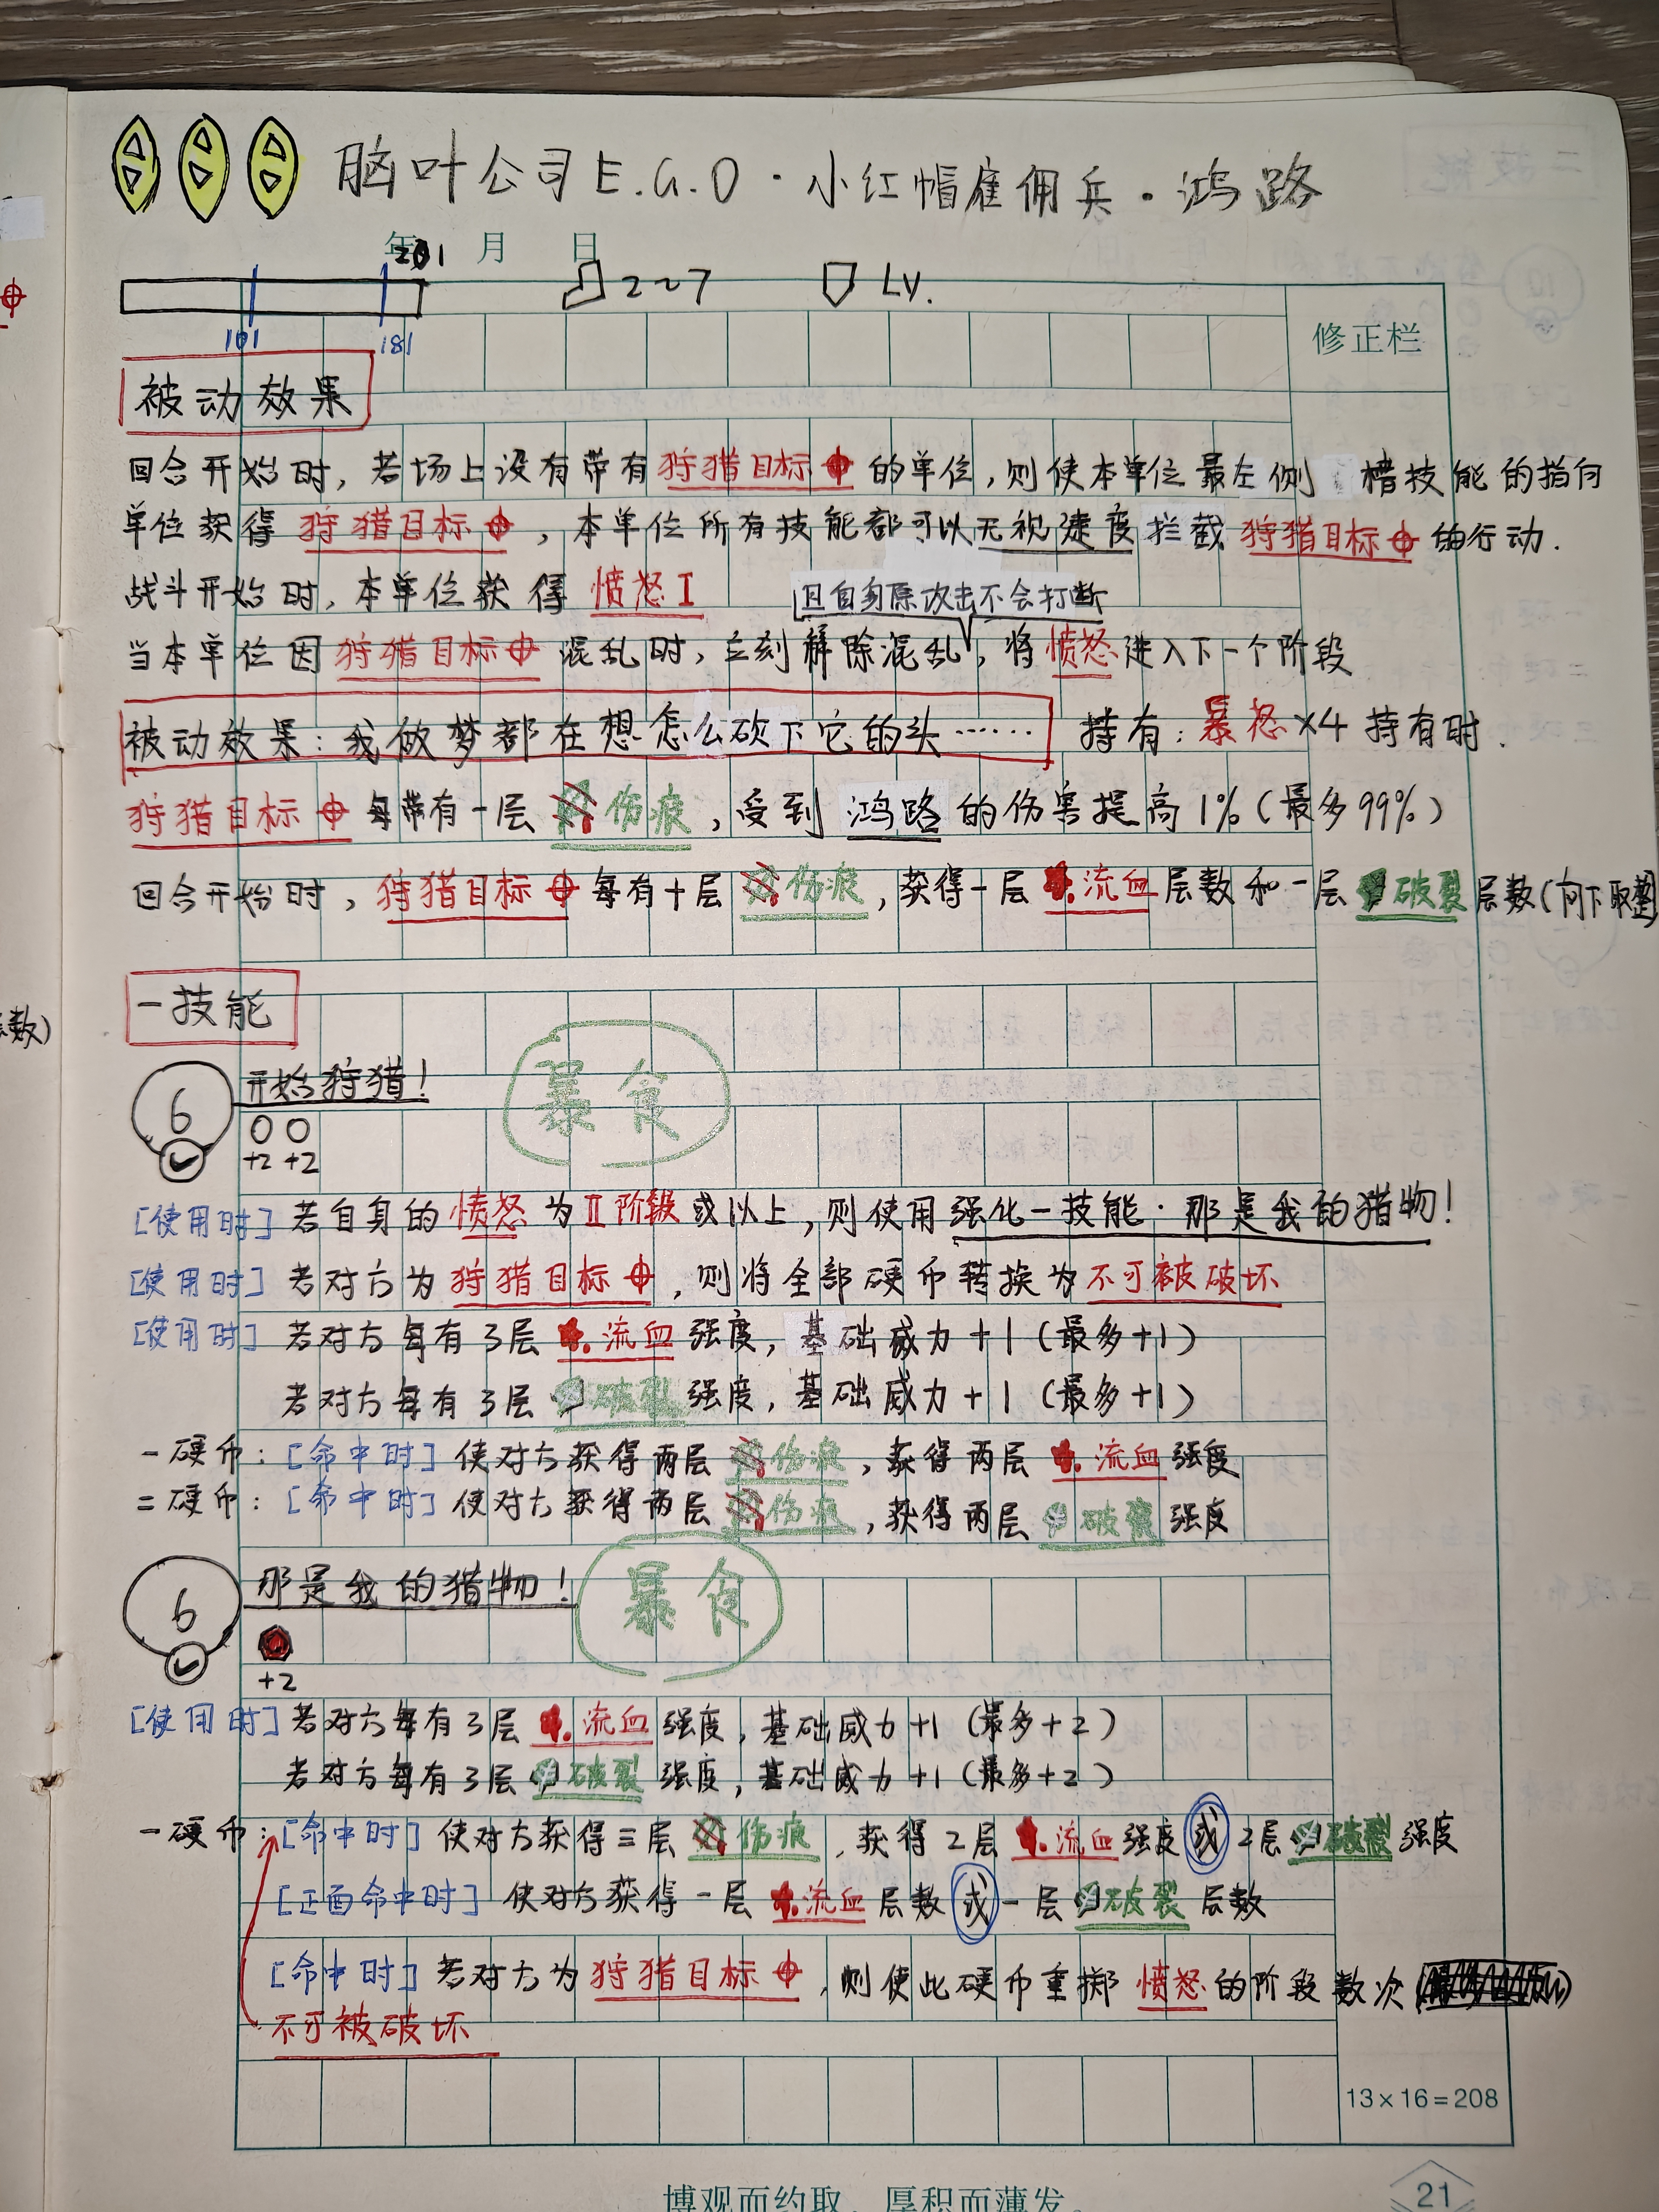 脑叶公司E.G.O·小红帽雇佣兵·鸿路
年 月 日
201
2~7 LV.
101 181
修正栏
被动效果
回合开始时,若场上没有带有狩猎目标的单位,则使本单位最左侧 槽技能的指向
单位获得狩猎目标,本单位所有技能都可以无视速度拦截狩猎目标的行动.
战斗开始时,本单位获得愤怒I
且自身原攻击不会打断
当本单位因狩猎目标混乱时,立刻解除混乱,将愤怒进入下一个阶段
被动效果:我做梦都在想怎么砍下它的头…… 持有:暴怒×4持有时.
狩猎目标每带有一层伤痕,受到鸿路的伤害提高1%(最多99%)
回合开始时,狩猎目标每有十层伤痕,获得一层流血层数和一层破裂层数(向下取整
层数)
一技能
开始狩猎!
暴食
6
+2 +2
[使用时] 若自身的愤怒为II阶段或以上,则使用强化一技能·那是我的猎物!
[使用时] 若对方为狩猎目标,则将全部硬币转换为不可被破坏
[使用时] 若对方每有3层流血强度,基础威力+1(最多+1)
若对方每有3层破裂强度,基础威力+1(最多+1)
一硬币:[命中时] 使对方获得两层伤痕,获得两层流血强度
二硬币:[命中时] 使对方获得两层伤痕,获得两层破裂强度
那是我的猎物!
暴食
6
+2
[使用时] 若对方每有3层流血强度,基础威力+1(最多+2)
若对方每有3层破裂强度,基础威力+1(最多+2)
一硬币:[命中时] 使对方获得三层伤痕,获得2层流血强度或2层破裂强度
[正面命中时] 使对方获得一层流血层数或一层破裂层数
[命中时] 若对方为狩猎目标,则使此硬币重掷愤怒的阶段数次
不可被破坏
13×16=208
博观而约取,厚积而薄发。
21